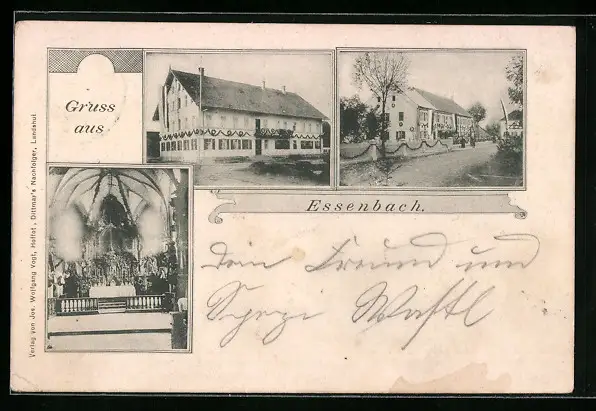 Gruss
aus
Essenbach.
Dein Freund und
Spezi Wastl
Verlag von Jos. Wolfgang Vogt, Hoflst., Dittmar's Nachfolger, Landshut.